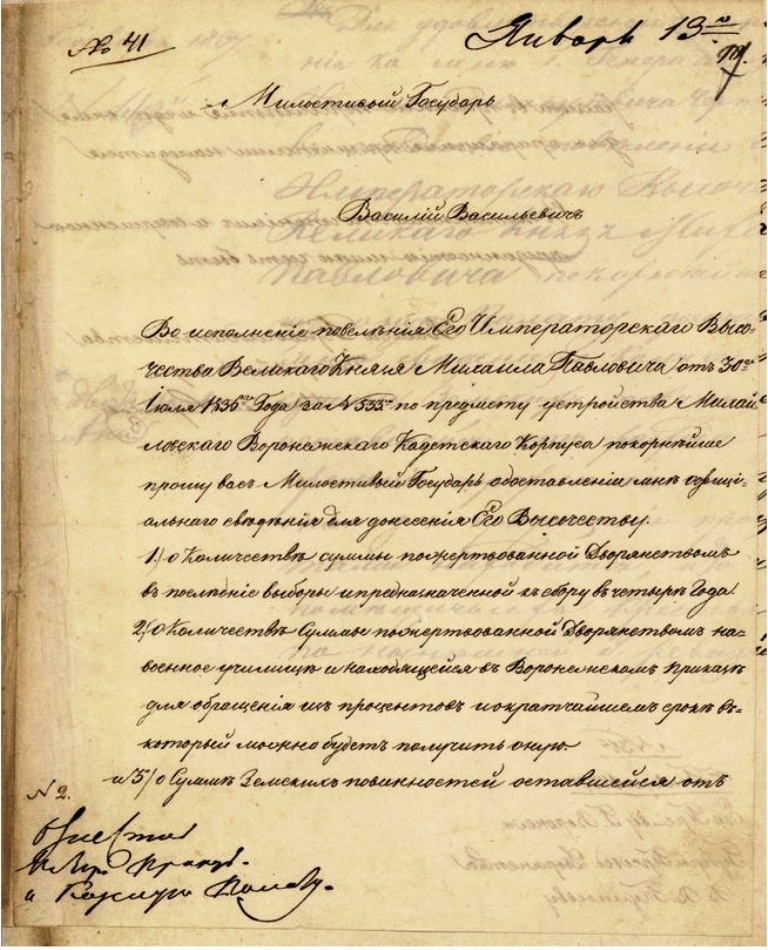 № 41
Январь 13го
Милостивый Государь
Василій Васильевичъ
Во исполненіе повелѣнія Его Императорскаго Высо-
чества Великаго Князя Михаила Павловича отъ 30го
Іюля 1836го Года за № 533мъ по предмету устройства Михай
ловскаго Воронежскаго Кадетскаго Корпуса покорнѣйше
прошу васъ Милостивый Государь одоставленіи мнѣ офиці-
альнаго свѣденія для донесенія Его Высочеству.
1) о Количествѣ суммы пожертвованной Дворянствомъ
въ послѣдніе выборы ипредназначенной къ сбору вчетыре Года.
2) о Количествѣ Суммы пожертвованной Дворянствомъ на-
военное училище и находящейся въ Воронежскомъ приказѣ
для обращенія изъ процентовъ иократчайшемъ срокѣ въ-
который можно будетъ получить оную.
и 3) о Суммѣ Земскихъ повинностей оставшейся отъ
№ 2.